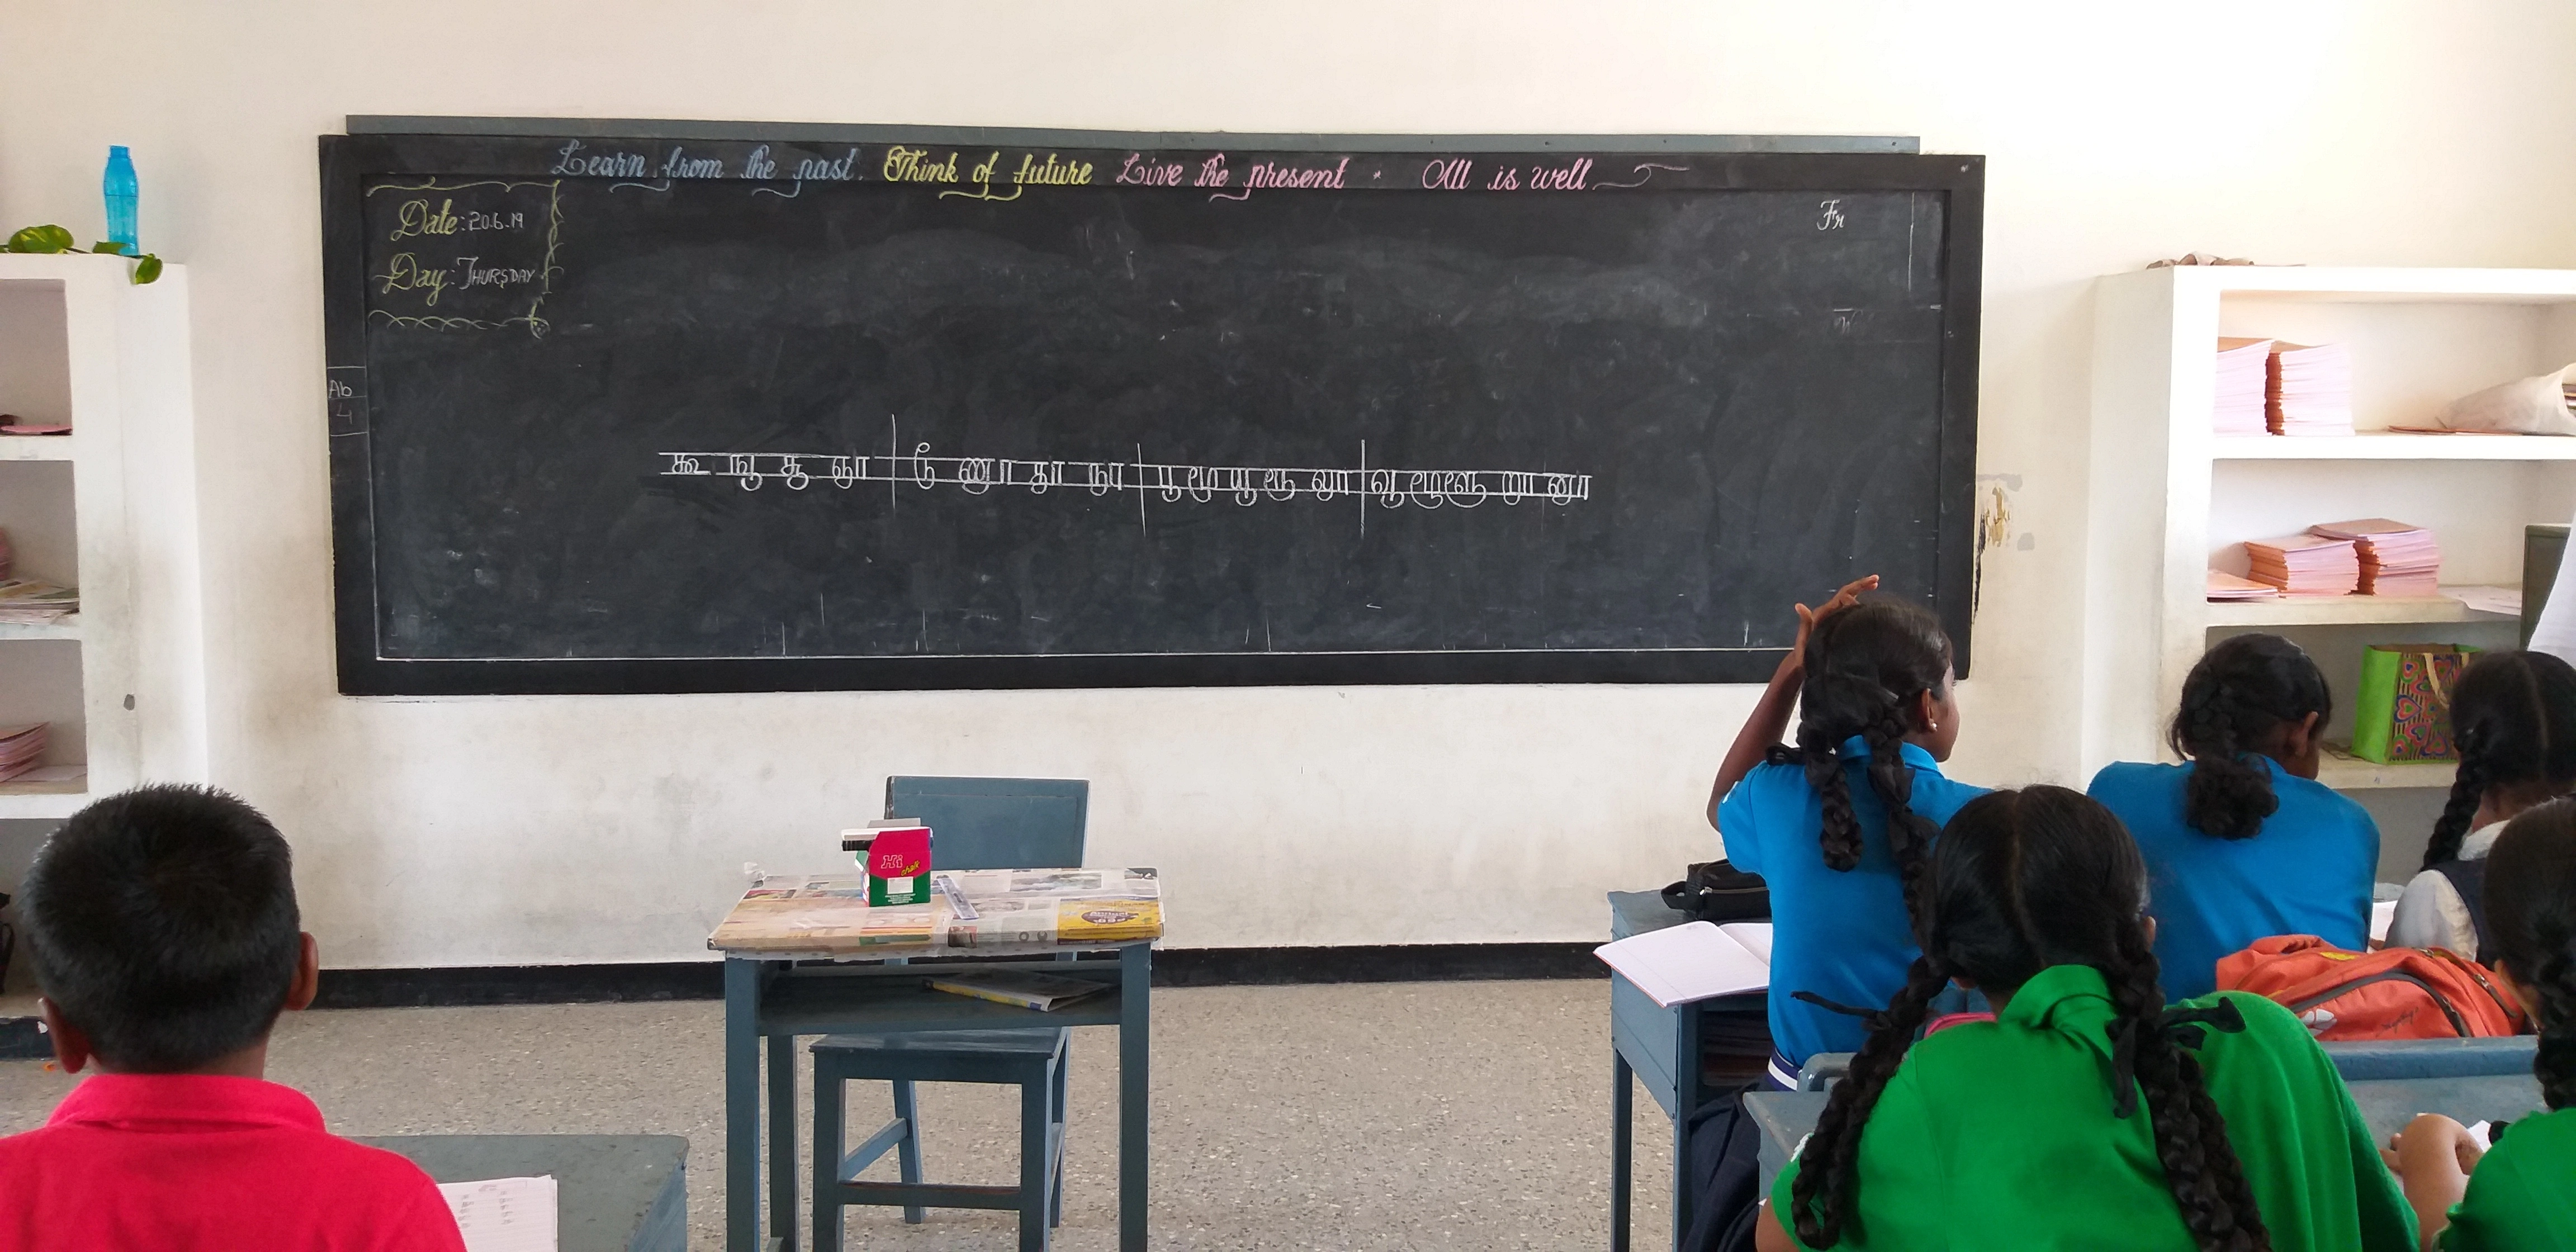 Learn from the past. Think of future Live the present • All is well
Date: 20.6.19
Day: THURSDAY
Fr
Ab
4
கூ ஙூ சூ ஞூ டூ ணூ தூ நூ பூ மூ யூ ரூ லூ வூ ழூ ளூ றூ னூ
Hi
chalk